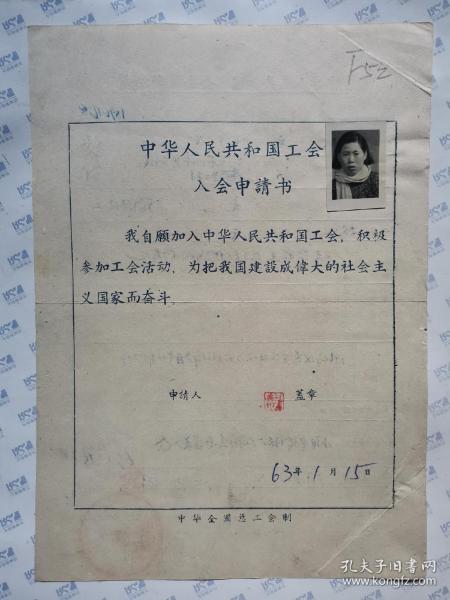 F52
中华人民共和国工会
入会申請书
我自願加入中华人民共和国工会，积极
参加工会活动，为把我国建設成偉大的社会主
义国家而奋斗．
申請人 盖章
63年1月15日
中华全国总工会制
孔夫子旧书网
www.kongfz.com